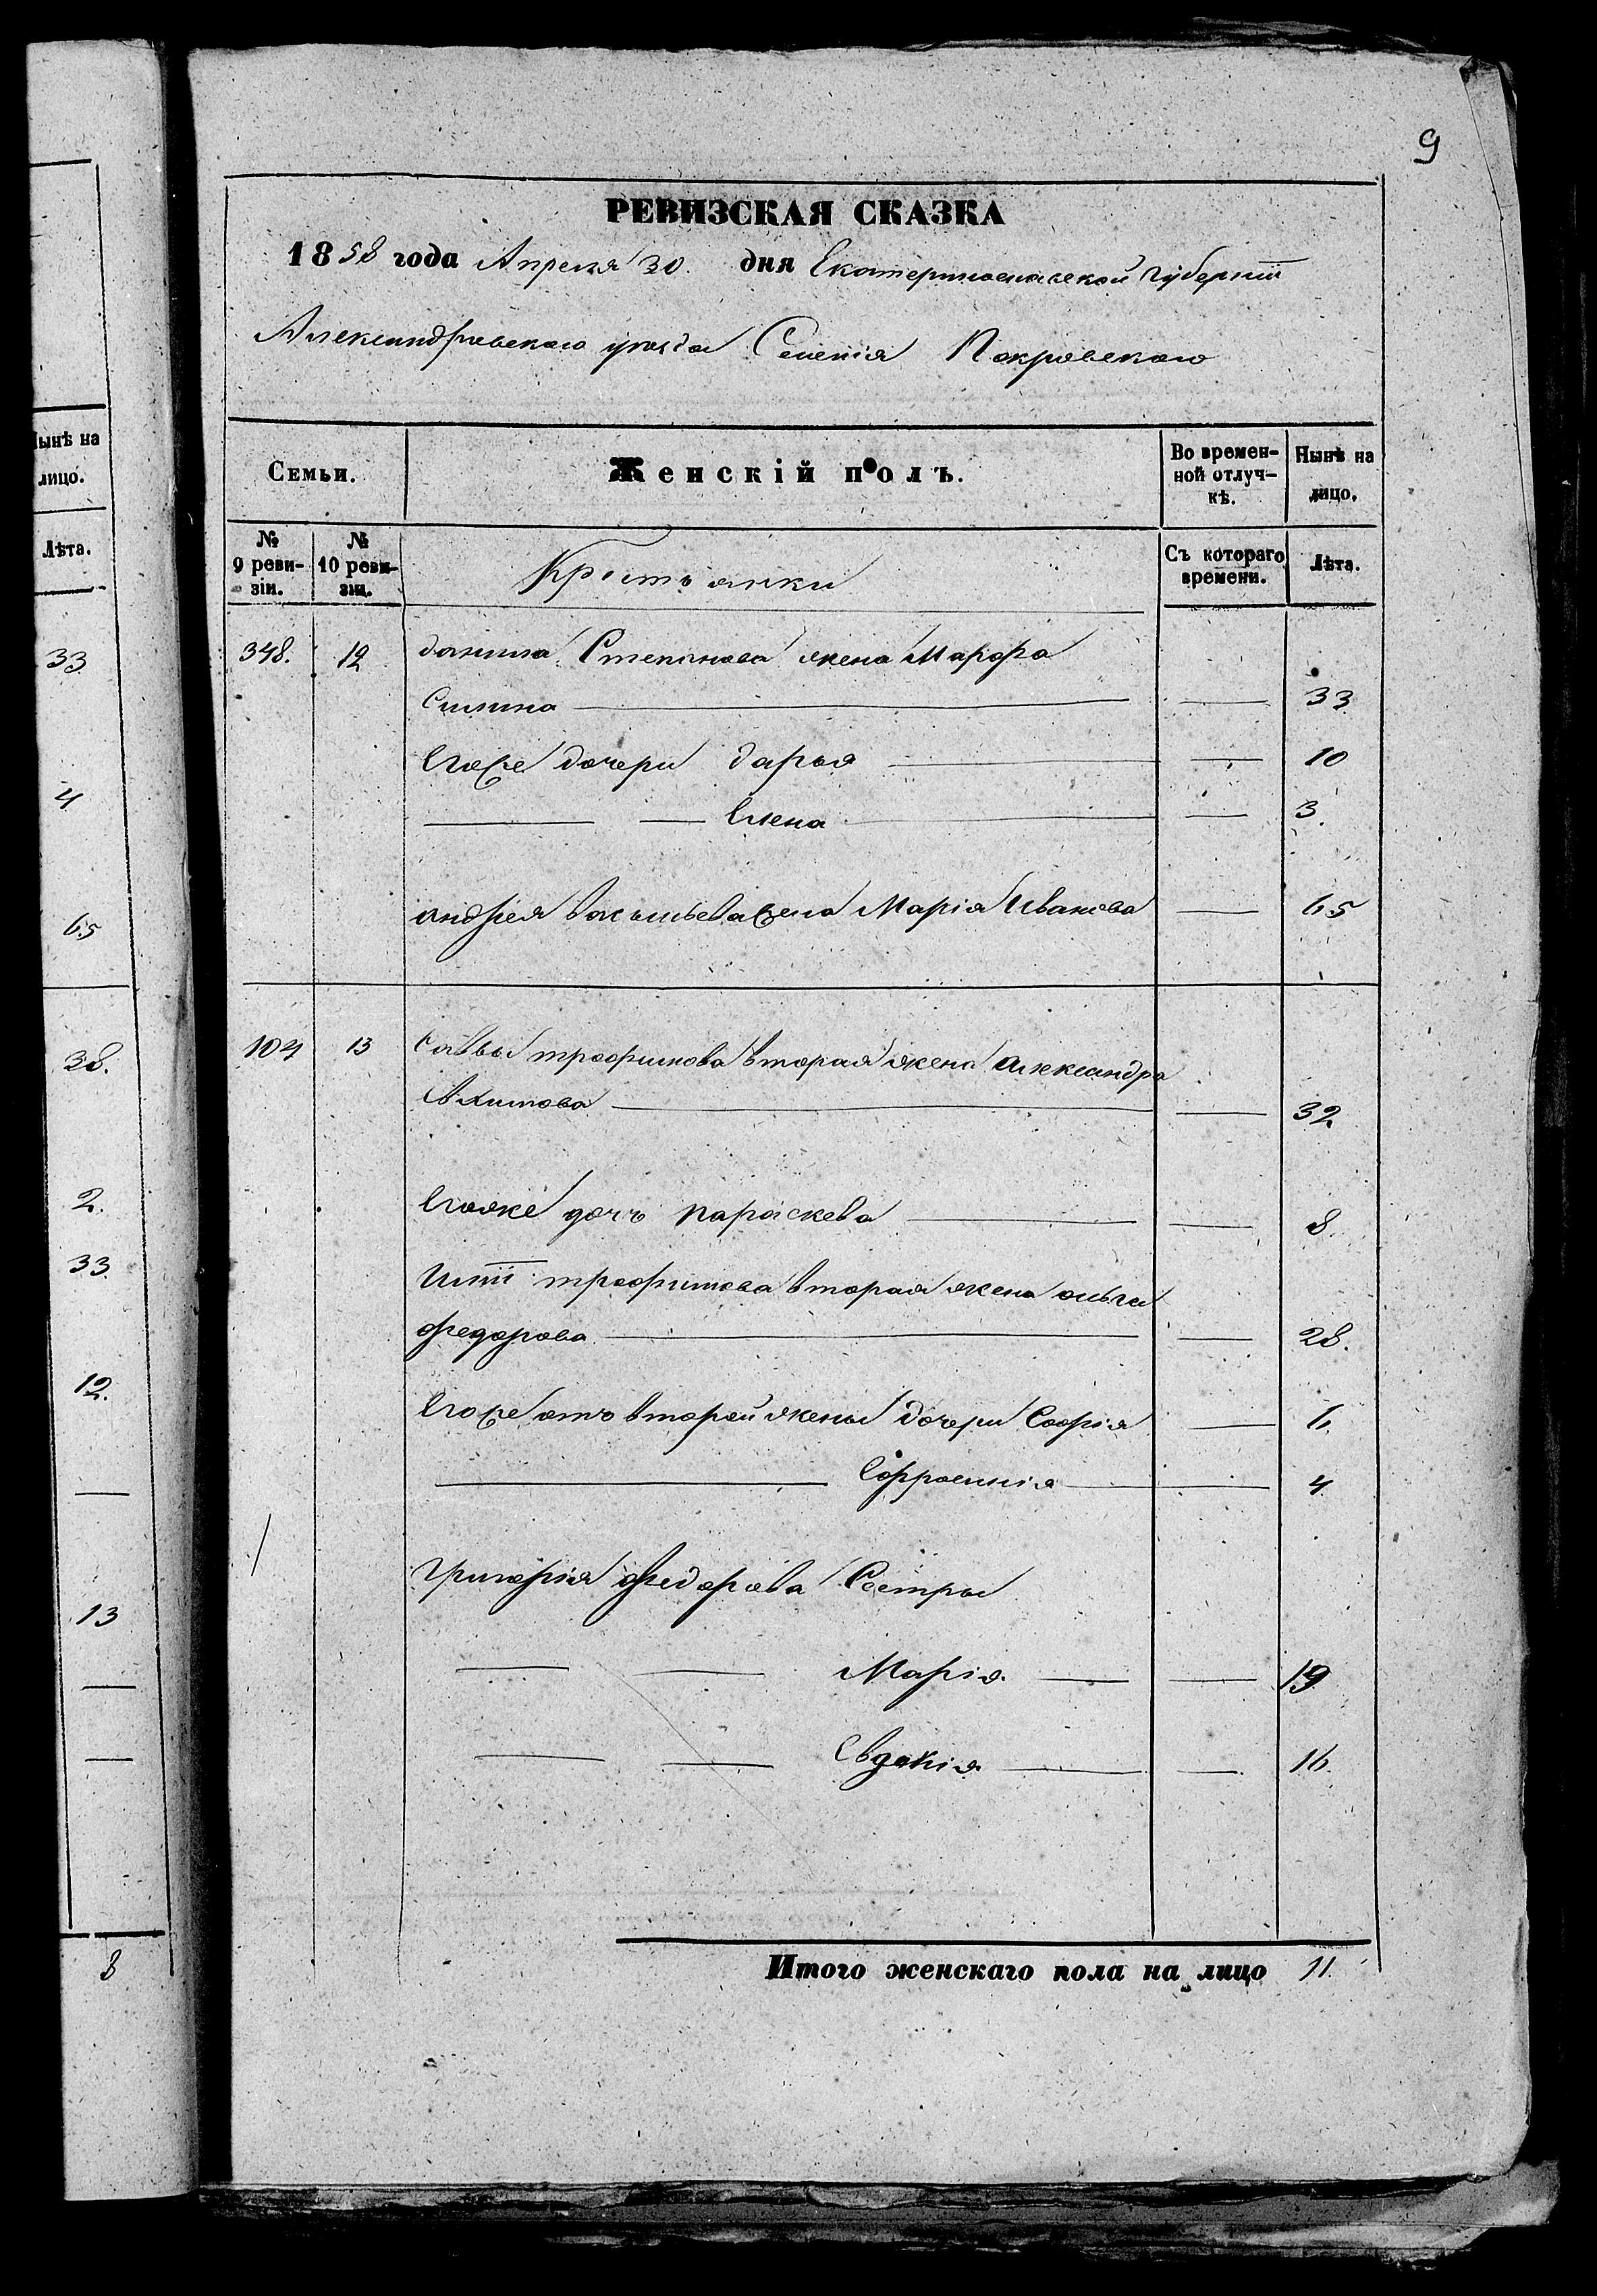 Нынѣ на
лицо.
Лѣта.
33
4
65
38.
2.
33.
12.
13
8
9
РЕВИЗСКАЯ СКАЗКА
1858 года Апреля 30. дня Екатеринославской губерніи
Александровскаго уѣзда Селенія Покровскаго
Семьи. Женскій полъ. Во времен- Нынѣ на
ной отлуч- лицо.
кѣ.
№ № Съ котораго Лѣта.
9 реви- 10 реви- Крестьянки времени.
зіи. зіи.
348. 12 данила Степанова жена Марфа
Силина — — 33
Егоже дочери дарья — — 10
— — Елена — — 3.
андрея васильева жена Марія Иванова — 65
104 13 Саввы трофимова вторая жена александра
— 32
Егоже дочь параскева — — 8.
трофимова вторая жена ольга
федорова — — 28.
Егоже отъ второй жены дочери Софія — 6.
— Ефросинія — — 4
григорія федорова Сестры
— — Марія — — 19
— — Евдокія — — 16.
Итого женскаго пола на лицо 11.